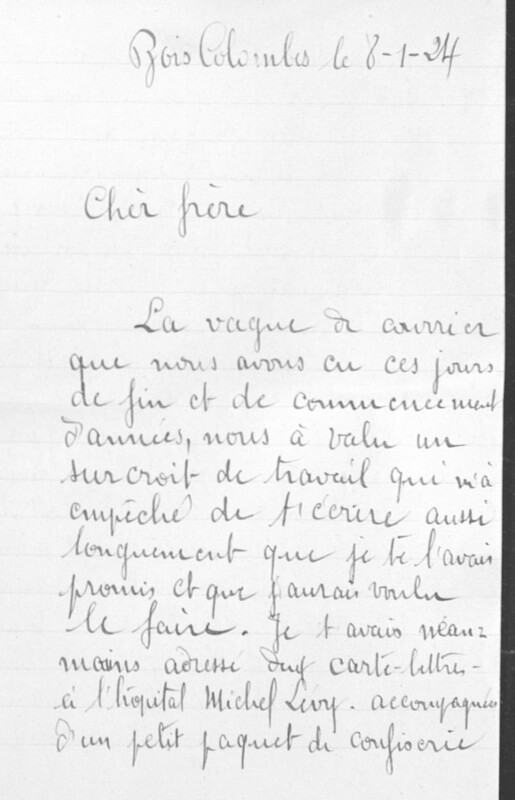 Bois Colombes le 8-1-24
Chèr frère
La vague de courrier
que nous avons eu ces jours
de fin et de commencement
d'années, nous à valu un
surcroit de travail qui m'à
empêché de t'écrire aussi
longuement que je te l'avais
promis et que j'aurais voulu
le faire. Je t'avais néan=
moins adressé deux carte-lettres-
à l'hôpital Michel Lévy. accompagnées
d'un petit paquet de confiserie